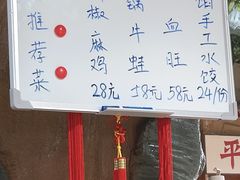 推荐菜
椒麻鸡
28元
锅牛蛙
58元
血旺
58元
手工水饺
24/份
平